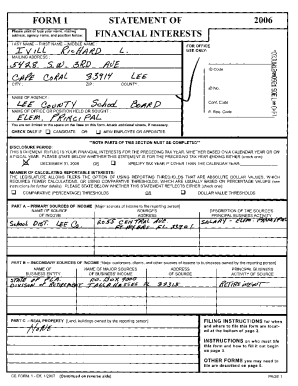 FORM 1 STATEMENT OF 2006
FINANCIAL INTERESTS
Please print or type your name, mailing address, agency name, and position below:
FOR OFFICE USE ONLY:
LAST NAME - FIRST NAME - MIDDLE NAME
IVILL RICHARD L.
MAILING ADDRESS
5425 S.W. 3RD. AVE
CAPE CORAL 33914 LEE
CITY: ZIP: COUNTY:
NAME OF AGENCY:
LEE COUNTY School BOARD
NAME OF OFFICE OR POSITION HELD OR SOUGHT:
ELEM. PRINCIPAL
CHECK ONLY IF CANDIDATE OR NEW EMPLOYEE OR APPOINTEE
ID Code
ID No.
Conf. Code
P. Req. Code
**BOTH PARTS OF THIS SECTION MUST BE COMPLETED**
DISCLOSURE PERIOD:
THIS STATEMENT REFLECTS YOUR FINANCIAL INTERESTS FOR THE PRECEDING TAX YEAR, WHETHER BASED ON A CALENDAR YEAR OR ON A FISCAL YEAR. PLEASE STATE BELOW WHETHER THIS STATEMENT IS FOR THE PRECEDING TAX YEAR ENDING EITHER (check one):
DECEMBER 31, 2006 OR SPECIFY TAX YEAR IF OTHER THAN THE CALENDAR YEAR:
MANNER OF CALCULATING REPORTABLE INTERESTS:
THE LEGISLATURE ALLOWS FILERS THE OPTION OF USING REPORTING THRESHOLDS THAT ARE ABSOLUTE DOLLAR VALUES, WHICH REQUIRES FEWER CALCULATIONS, OR USING COMPARATIVE THRESHOLDS, WHICH ARE USUALLY BASED ON PERCENTAGE VALUES (see instructions for further details). PLEASE STATE BELOW WHETHER THIS STATEMENT REFLECTS EITHER (check one):
COMPARATIVE (PERCENTAGE) THRESHOLDS OR DOLLAR VALUE THRESHOLDS
PART A -- PRIMARY SOURCES OF INCOME [Major sources of income to the reporting person]
NAME OF SOURCE OF INCOME SOURCE'S ADDRESS DESCRIPTION OF THE SOURCE'S PRINCIPAL BUSINESS ACTIVITY
School DIST. LEE Co. 2055 CENTRAL AVE FT. MYERS, FL. 33901 SALARY - ELEM. PRINCIPAL
PART B -- SECONDARY SOURCES OF INCOME [Major customers, clients, and other sources of income to businesses owned by the reporting person]
NAME OF BUSINESS ENTITY NAME OF MAJOR SOURCES OF BUSINESS' INCOME ADDRESS OF SOURCE PRINCIPAL BUSINESS ACTIVITY OF SOURCE
STATE OF FLA. P.O. BOX 9000
DIVISION OF RETIREMENT TALLAHASSEE FL. 32315 RETIREMENT
PART C -- REAL PROPERTY [Land, buildings owned by the reporting person]
NONE
FILING INSTRUCTIONS for when and where to file this form are located at the bottom of page 2.
INSTRUCTIONS on who must file this form and how to fill it out begin on page 3.
OTHER FORMS you may need to file are described on page 6.
CE FORM 1 - Eff. 1/2007 (Continued on reverse side) PAGE 1